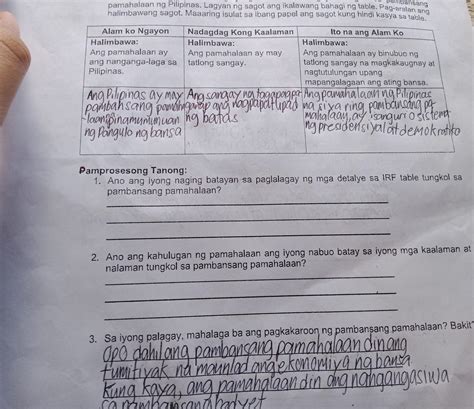 pambansang
pamahalaan ng Pilipinas. Lagyan ng sagot ang ikalawang bahagi ng table. Pag-aralan ang
halimbawang sagot. Maaaring isulat sa ibang papel ang sagot kung hindi kasya sa table.
Alam ko Ngayon Nadagdag Kong Kaalaman Ito na ang Alam Ko
Halimbawa: Halimbawa: Halimbawa:
Ang pamahalaan ay Ang pamahalaan ay may Ang pamahalaan ay binubuo ng
ang nanganga-laga sa tatlong sangay. tatlong sangay na magkakaugnay at
Pilipinas. nagtutulungan upang
mapangalagaan ang ating bansa.
Ang Pilipinas ay may Ang sangay ng tagapagpa Ang pamahalaan ng Pilipinas
pambansang pamahalaan ganap ang nagpapatupad na siya ring pambansang pa
pinamumunuan ng batas mahalaan, ay
ng Pangulo ng bansa ng presidensiyal at demokratiko
Pamprosesong Tanong:
1. Ano ang iyong naging batayan sa paglalagay ng mga detalye sa IRF table tungkol sa
pambansang pamahalaan?
2. Ano ang kahulugan ng pamahalaan ang iyong nabuo batay sa iyong mga kaalaman at
nalaman tungkol sa pambansang pamahalaan?
3. Sa iyong palagay, mahalaga ba ang pagkakaroon ng pambansang pamahalaan? Bakit
Opo dahil ang pambansang pamahalaan din ang
tumitiyak na maunlad ang ekonomiya ng bansa.
Kung kaya, ang pamahalaan din ang nangangasiwa
sa pambansang badyet